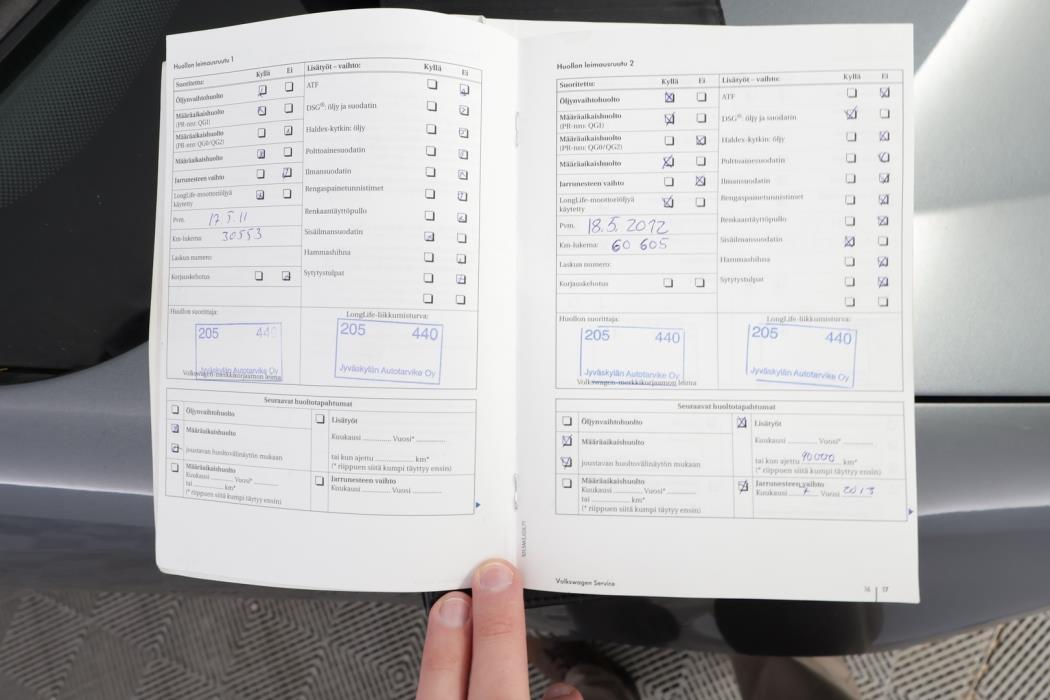 Huollon leimausruutu 1
Suoritettu: Kyllä Ei
Öljynvaihtohuolto
Määräaikaishuolto
(PR-nro: QG1)
Määräaikaishuolto
(PR-nro: QG0/QG2)
Määräaikaishuolto
Jarrunesteen vaihto
LongLife-moottoriöljyä
käytetty
Pvm. 17.5.11
Km-lukema: 30553
Laskun numero:
Korjauskehotus
Lisätyöt – vaihto: Kyllä Ei
ATF
DSG®: öljy ja suodatin
Haldex-kytkin: öljy
Polttoainesuodatin
Ilmansuodatin
Rengaspainetunnistimet
Renkaantäyttöpullo
Sisäilmansuodatin
Hammashihna
Sytytystulpat
Huollon suorittaja:
205 440
Jyväskylän Autotarvike Oy
Volkswagen-merkkikorjaamon leima
LongLife-liikkumisturva:
205 440
Jyväskylän Autotarvike Oy
Seuraavat huoltotapahtumat
Öljynvaihtohuolto
Määräaikaishuolto
joustavan huoltovälinäytön mukaan
Määräaikaishuolto
Kuukausi ............ Vuosi* ............
tai ............ km*
(* riippuen siitä kumpi täyttyy ensin)
Lisätyöt
Kuukausi ............ Vuosi* ............
tai kun ajettu ............ km*
(* riippuen siitä kumpi täyttyy ensin)
Jarrunesteen vaihto
Kuukausi ............ Vuosi ............
Huollon leimausruutu 2
Suoritettu: Kyllä Ei
Öljynvaihtohuolto
Määräaikaishuolto
(PR-nro: QG1)
Määräaikaishuolto
(PR-nro: QG0/QG2)
Määräaikaishuolto
Jarrunesteen vaihto
LongLife-moottoriöljyä
käytetty
Pvm. 18.5.2012
Km-lukema: 60 605
Laskun numero:
Korjauskehotus
Lisätyöt – vaihto: Kyllä Ei
ATF
DSG®: öljy ja suodatin
Haldex-kytkin: öljy
Polttoainesuodatin
Ilmansuodatin
Rengaspainetunnistimet
Renkaantäyttöpullo
Sisäilmansuodatin
Hammashihna
Sytytystulpat
Huollon suorittaja:
205 440
Jyväskylän Autotarvike Oy
Volkswagen-merkkikorjaamon leima
LongLife-liikkumisturva:
205 440
Jyväskylän Autotarvike Oy
Seuraavat huoltotapahtumat
Öljynvaihtohuolto
Määräaikaishuolto
joustavan huoltovälinäytön mukaan
Määräaikaishuolto
Kuukausi ............ Vuosi* ............
tai ............ km*
(* riippuen siitä kumpi täyttyy ensin)
Lisätyöt
Kuukausi ............ Vuosi* ............
tai kun ajettu 90000 km*
(* riippuen siitä kumpi täyttyy ensin)
Jarrunesteen vaihto
Kuukausi 7 Vuosi 2013
Volkswagen Service
16 | 17